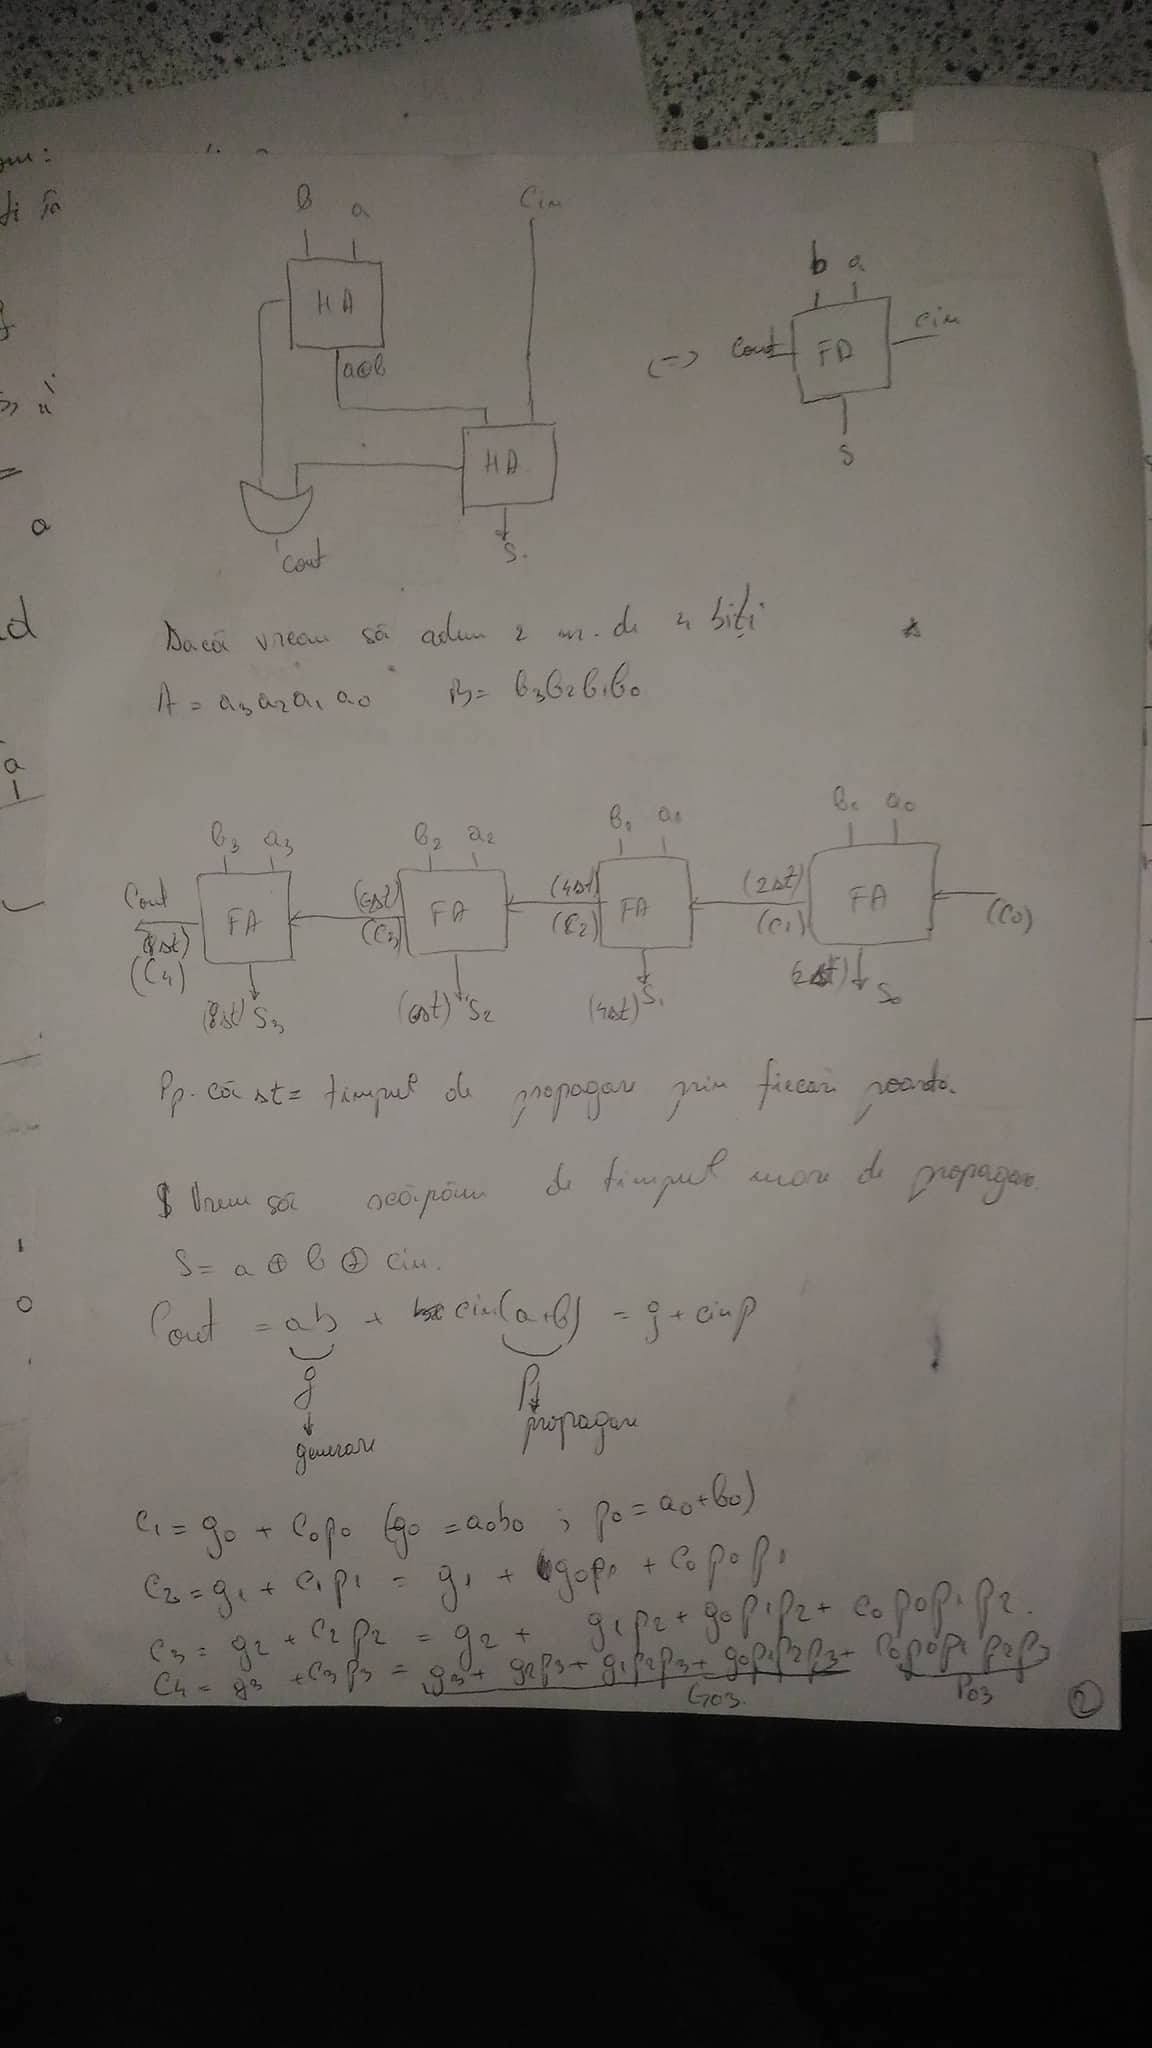 B a Cin
HA
a⊕b
HA
cout
S.
b a
(=) Cout FA cin
S
Dacă vrem să adun 2 nr. de 4 biți
A = a3a2a1a0 B = b3b2b1b0
b3 a3 b2 a2 b1 a1 b0 a0
Cout FA (6Δt) FA (4Δt) FA (2Δt) FA
(8Δt) (C3) (C2) (C1) (C0)
(C4)
(8Δt) S3 (6Δt) S2 (4Δt) S1 (2Δt) S0
Pp. că Δt = timpul de propagare prin fiecare poartă.
Vrem să scăpăm de timpul mare de propagare.
S = a ⊕ b ⊕ cin.
Cout = ab + cin(a+b) = g + cinp
g p
generare propagare
C1 = g0 + C0p0 (g0 = a0b0 ; p0 = a0+b0)
C2 = g1 + C1p1 = g1 + g0p1 + C0p0p1
C3 = g2 + C2p2 = g2 + g1p2 + g0p1p2 + C0p0p1p2.
C4 = g3 + C3p3 = g3 + g2p3 + g1p2p3 + g0p1p2p3 + C0p0p1p2p3
G03. P03
2